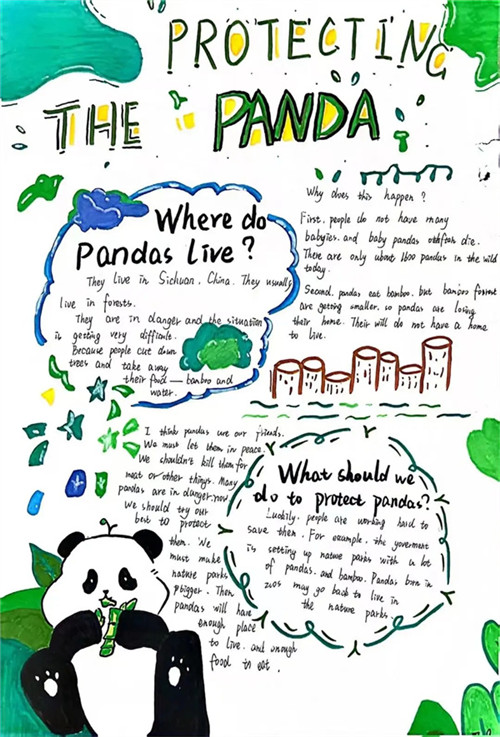 PROTECTING
THE PANDA
Where do
Pandas Live?
They live in Sichuan. China. They usually
live in forests.
They are in danger and the situation
is getting very difficult.
Because people cut down
trees and take away
their food — bamboo and
water.
Why does this happen?
First, people do not have many
babyies. and baby pandas die.
There are only about 1600 pandas in the wild
today.
Second, pandas eat bamboo. but bamboo forest
are getting smaller. so pandas are losing
their home. Their will do not have a home
to live.
I think pandas are our friends.
We must let them in peace.
We shouldn't kill them for
meat or other things. Many
pandas are in danger now
We should try our
best to protect
them. We
must make
nature parks
bigger. Then
pandas will have
enough place
to live. and enough
food to eat.
What should we
do to protect pandas?
Luckily, people are working hard to
save then. For example, the goverment
is setting up nature parks with a lot
of pandas, and bamboo. Pandas born in
zoos may go back to live in
the nature parks.